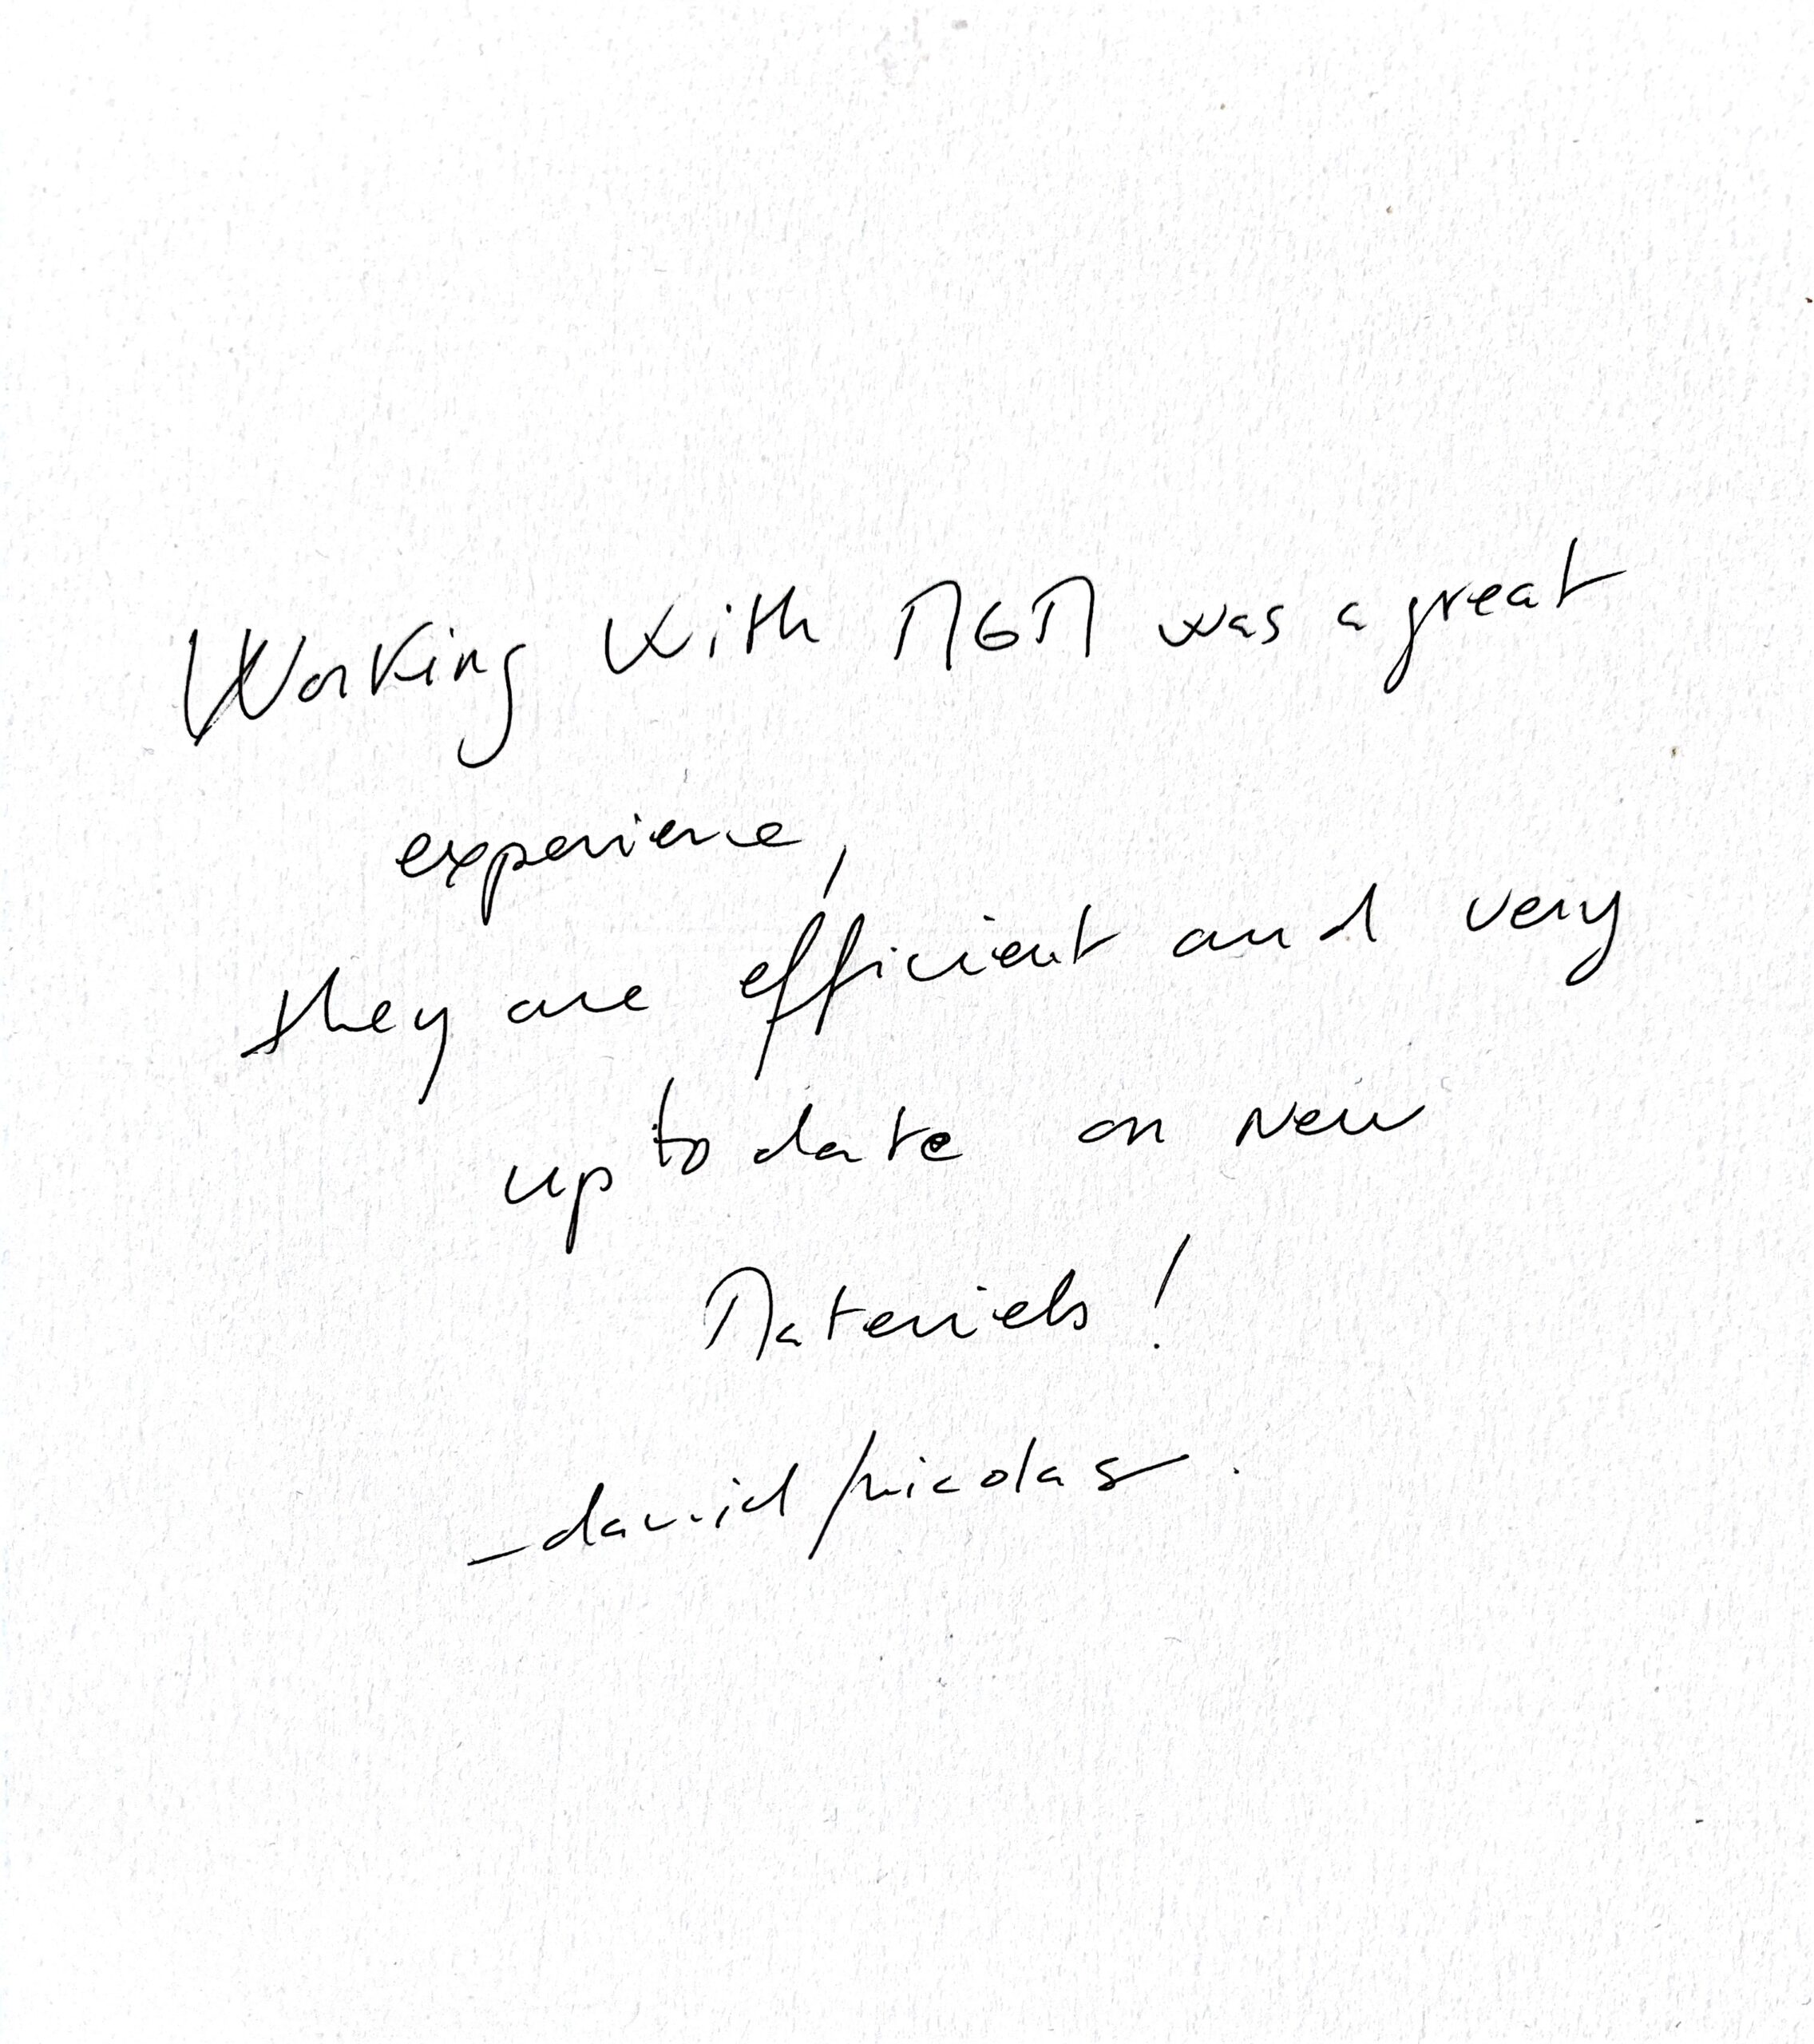 Working with MGM was a great
experience,
they are efficient and very
up to date on New
Materiels !
_david/nicolas.